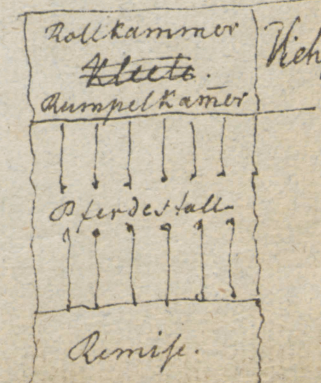 Rollkammer
Kleete.
Rumpelkam̄er
Pferdestall
Remise.
Vieh